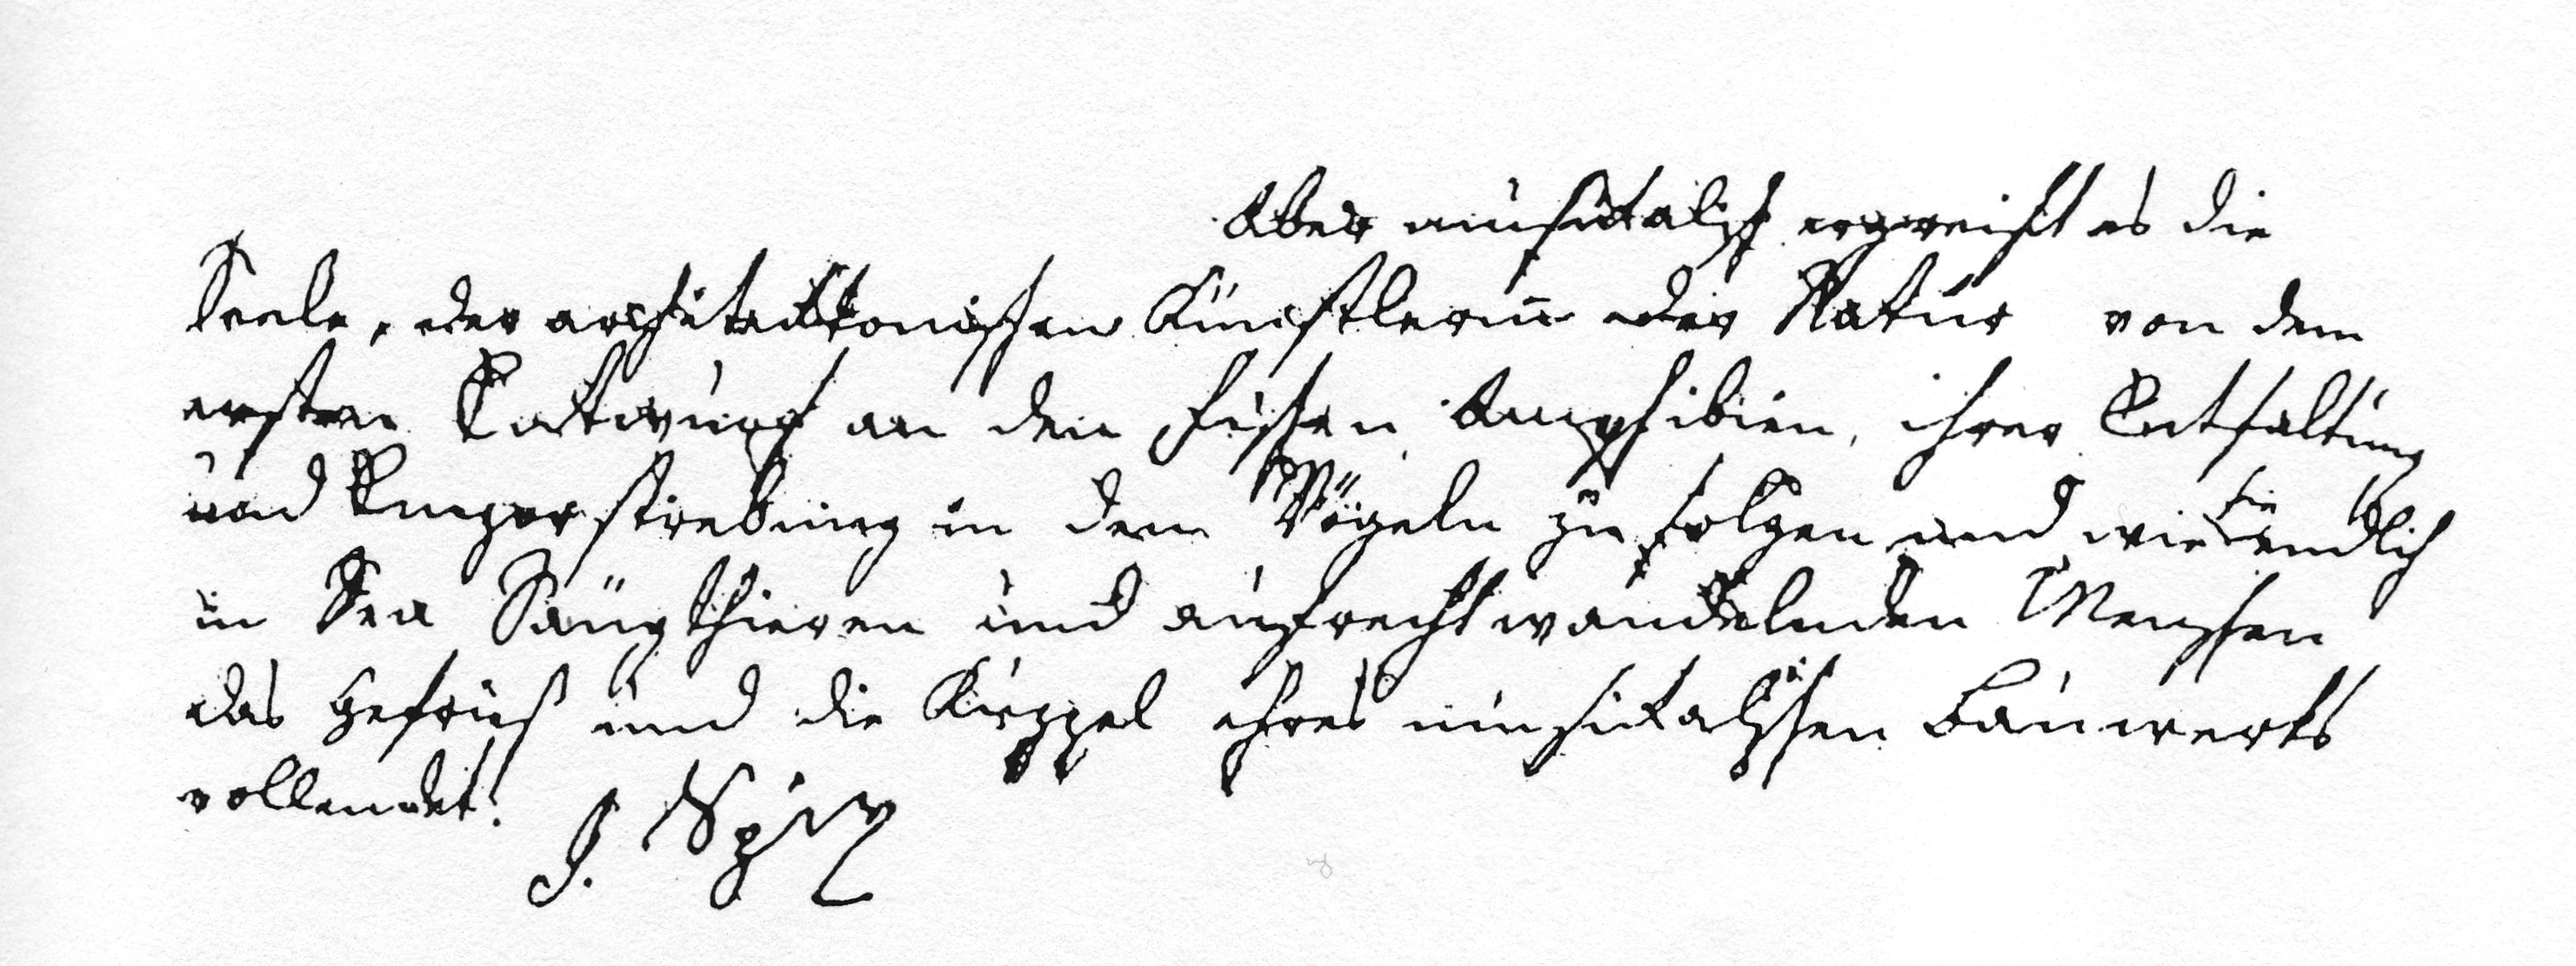 Aber musikalisch ergreift es die
Seele, der architektonischen Künstlerin der Natur von dem
ersten Entwurf an den Fischen, Amphibien, ihrer Entfaltung
und Emporstrebung in den Vögeln zu folgen und wie sie endlich
in den Säugthieren und aufrecht wandelnden Menschen
das Gesims und die Kuppel ihres musikalischen Bauwerks
vollendet. J. Spix